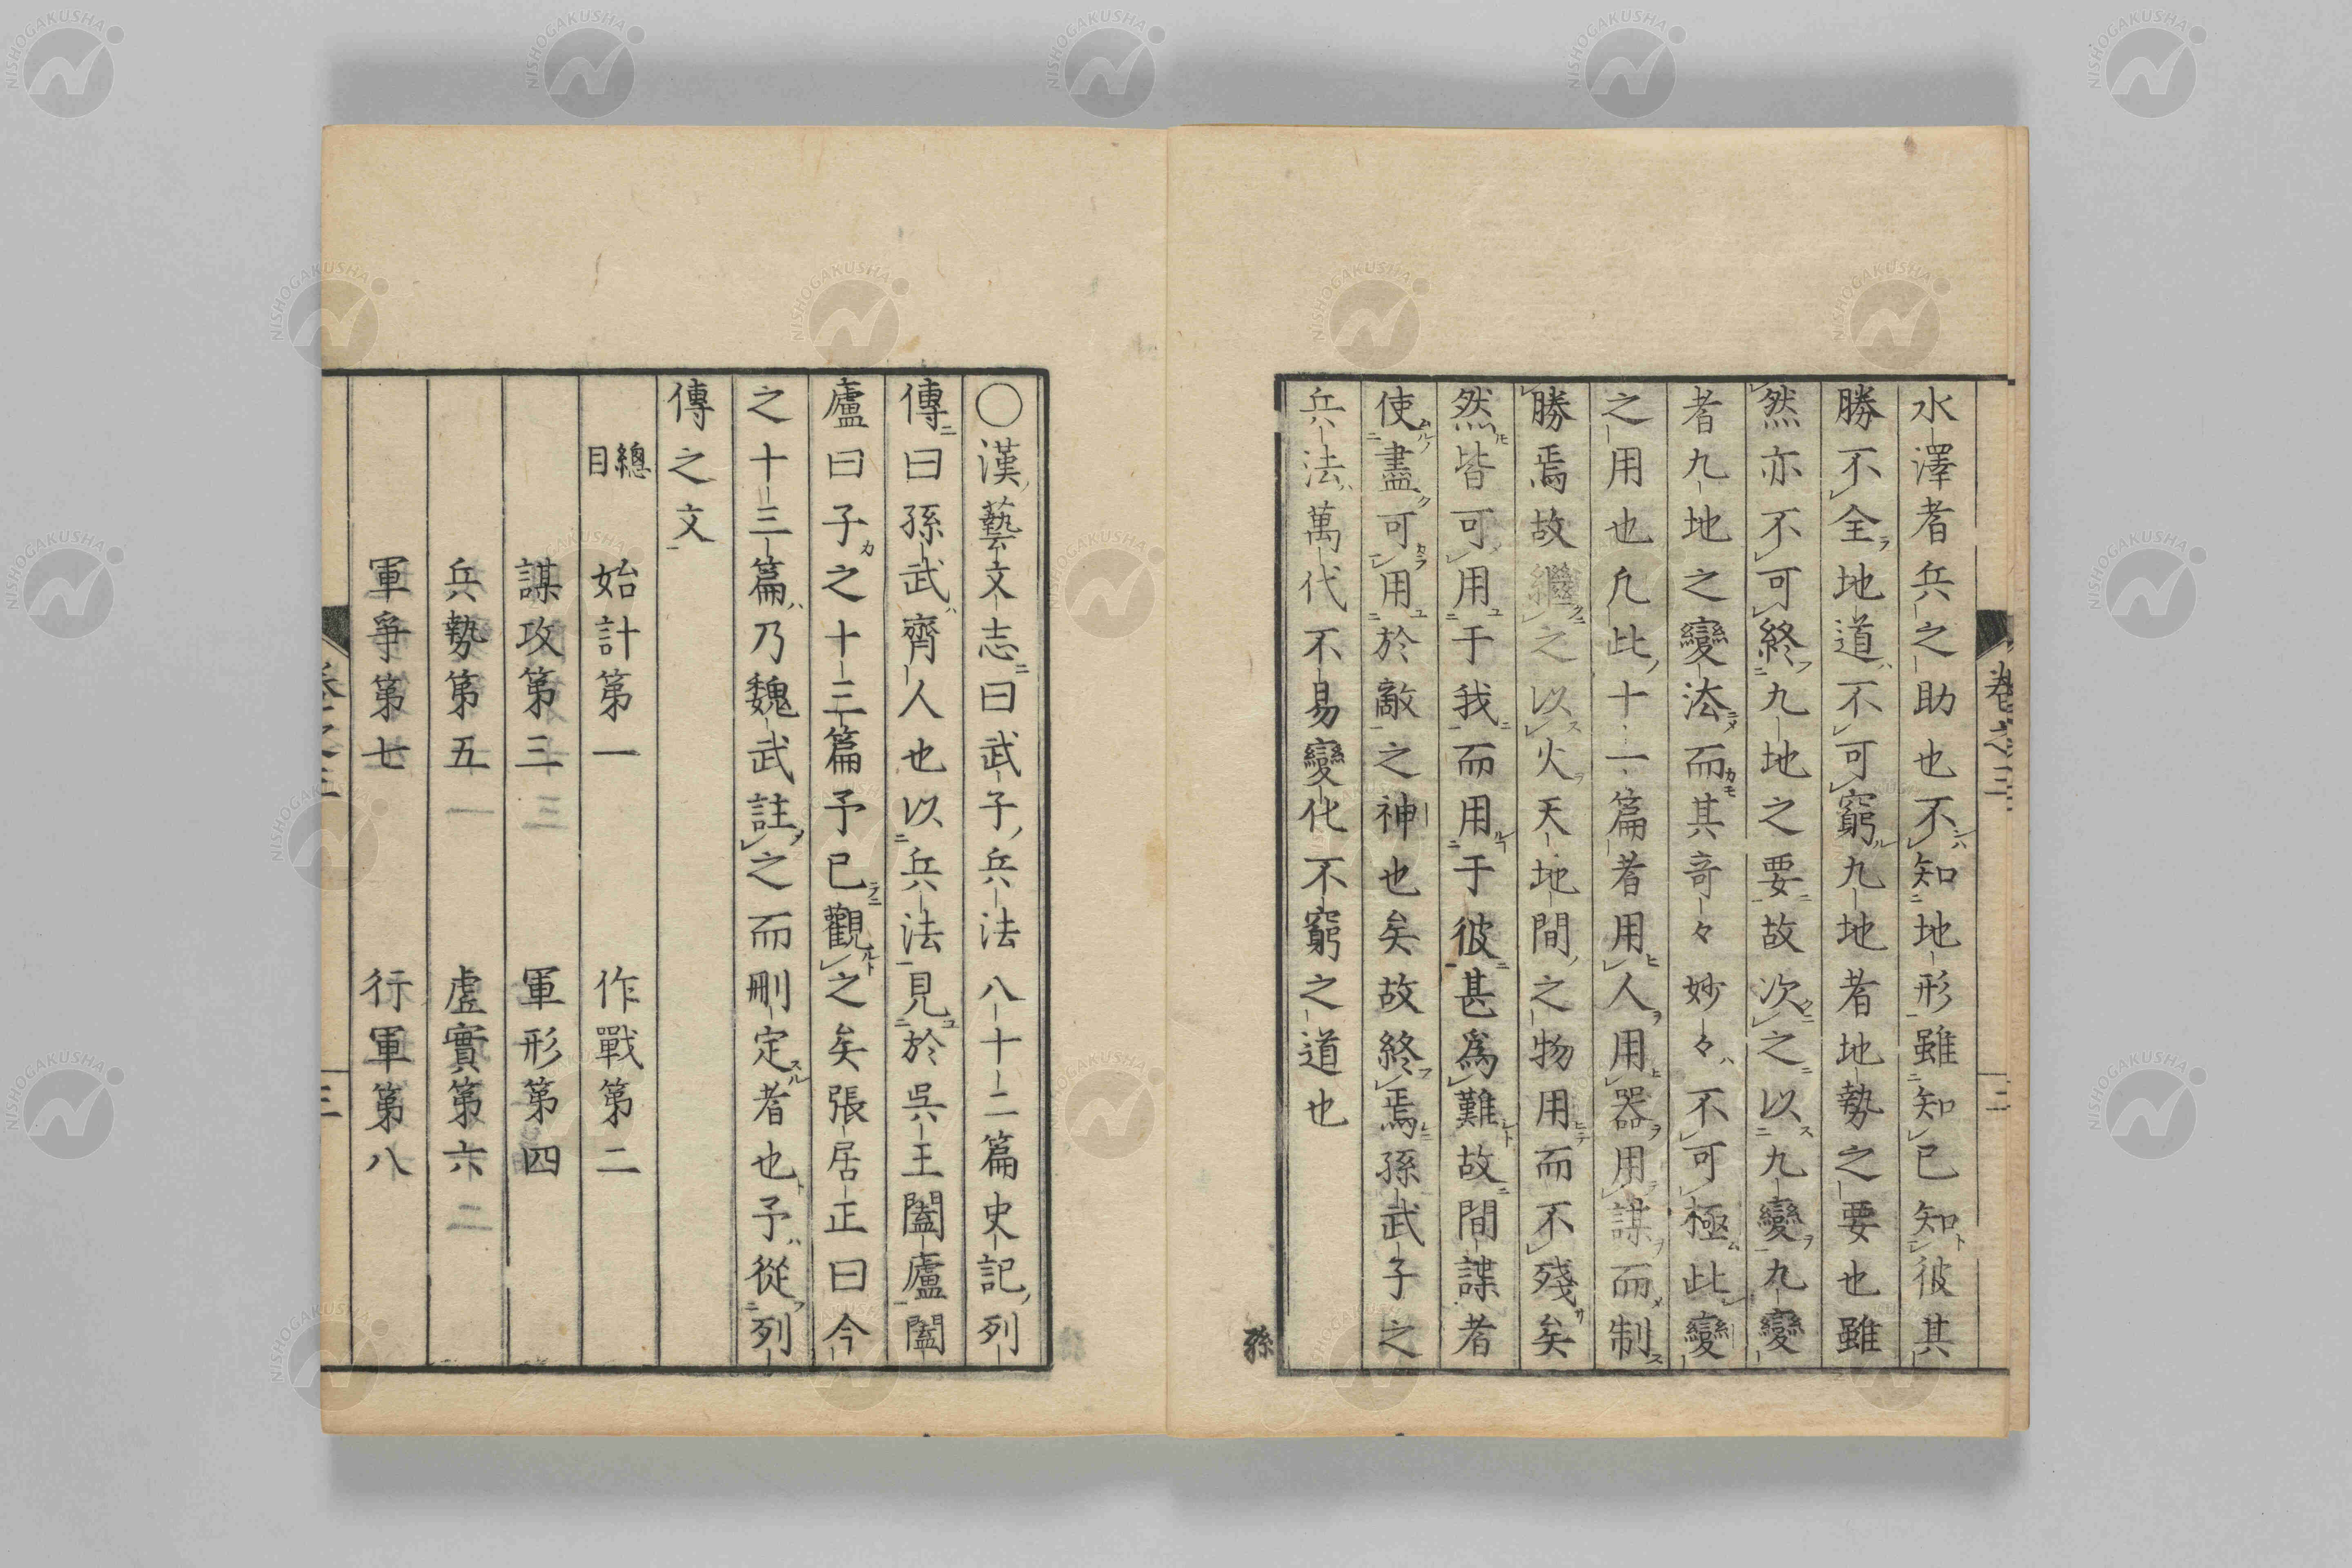 水澤者兵之助也不知地形雖知已知彼其
勝不全地道不可窮九地者地勢之要也雖
然亦不可終九地之要故次之以九變九變
者九地之變法而其奇々妙々不可極此變
之用也凡此十一篇者用人用器用謀而制
勝焉故繼之以火天地間之物用而不殘矣
然皆可用于我而用于彼甚爲難故間諜者
使盡可用於敵之神也矣故終焉孫武子之
兵法萬代不易變化不窮之道也
孫
〇漢藝文志曰武子兵法八十二篇史記列
傳曰孫武齊人也以兵法見於吳王闔廬闔
廬曰子之十三篇予已觀之矣張居正曰今
之十三篇乃魏武註之而刪定者也予從列
傳之文
總目 始計第一 作戰第二
謀攻第三 軍形第四
兵勢第五 虛實第六
軍爭第七 行軍第八
NISHOGAKUSHA